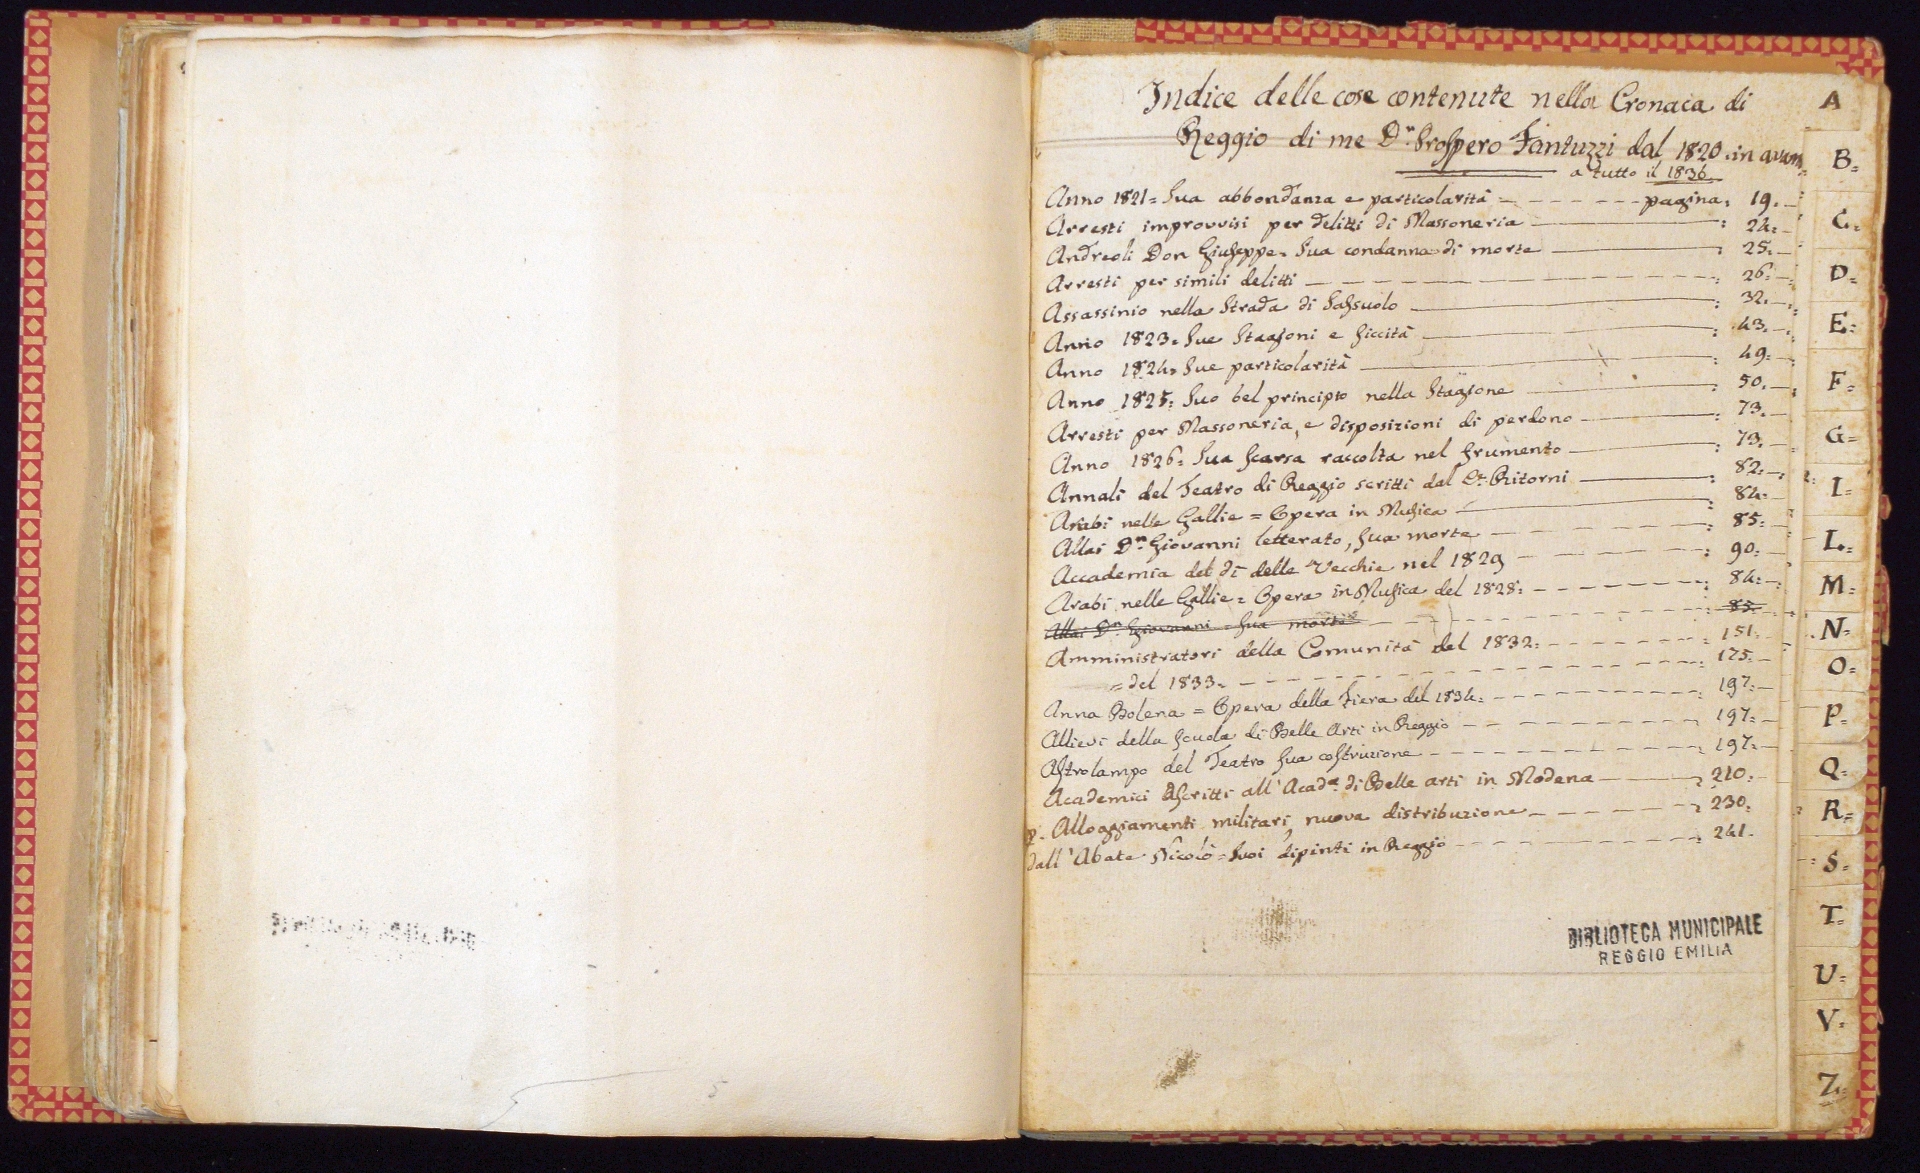 Indice delle cose contenute nella Cronaca di
Reggio di me D.n Prospero Fantuzzi dal 1820 in avan
a tutto il 1836.
Anno 1821 = Sua abbondanza e particolarità - - - - - - pagina: 19. -
Arresti improvvisi per delitti di Massoneria ——— : 24: -
Andreoli Don Giuseppe = Sua condanna di morte ——— : 25: -
Arresti per simili delitti - - - - - - : 26: -
Assassinio nella Strada di Sassuolo ——— : 32: -
Anno 1823 = Sue Stagioni e siccità ——— : 43: -
Anno 1824 = Sue particolarità ——— : 49: -
Anno 1825 = Suo bel principio nella Stagione ——— : 50: -
Arresti per Massoneria, e disposizioni di perdono ——— : 73. -
Anno 1826 = Sua scarsa raccolta nel frumento ——— : 73. -
Annali del Teatro di Reggio scritti dal Cr. Ritorni ——— : 82: -
Arabi nelle Gallie = Opera in Musica ——— : 84: -
Allai D.n Giovanni letterato, sua morte - - - - - : 85: -
Accademia del dì delle Vecchie nel 1829 - - - - - : 90: -
Arabi nelle Gallie = Opera in Musica del 1828: - - - - - : 84: -
Allai D.n Giovanni = Sua morte - - - - - : 85.
Amministratori della Comunità del 1832: - - - - - : 151: -
= del 1833 = - - - - - : 175: -
Anna Bolena = Opera della Fiera del 1834: - - - - - : 197: -
Allievi della scuola di Belle Arti in Reggio - - - - - : 197: -
Astrolampo del Teatro sua costruzione - - - - - : 197: -
Academici Ascritti all'Acad.a di Belle arti in Modena ——— : 210: -
p. Alloggiamenti militari, nuova distribuzione - - - - - : 230:
dall'Abate Nicolò = Suoi dipinti in Reggio - - - - - : 241.
BIBLIOTECA MUNICIPALE
REGGIO EMILIA
A
B=
C=
D=
E=
F=
G=
I=
L=
M=
N=
O=
P=
Q=
R=
S=
T=
U=
V=
Z=
5